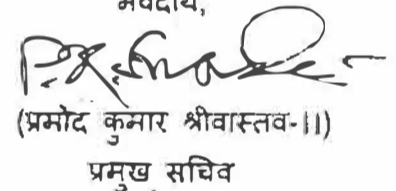 भवदीय,
(प्रमोद कुमार श्रीवास्तव-।।)
प्रमुख सचिव